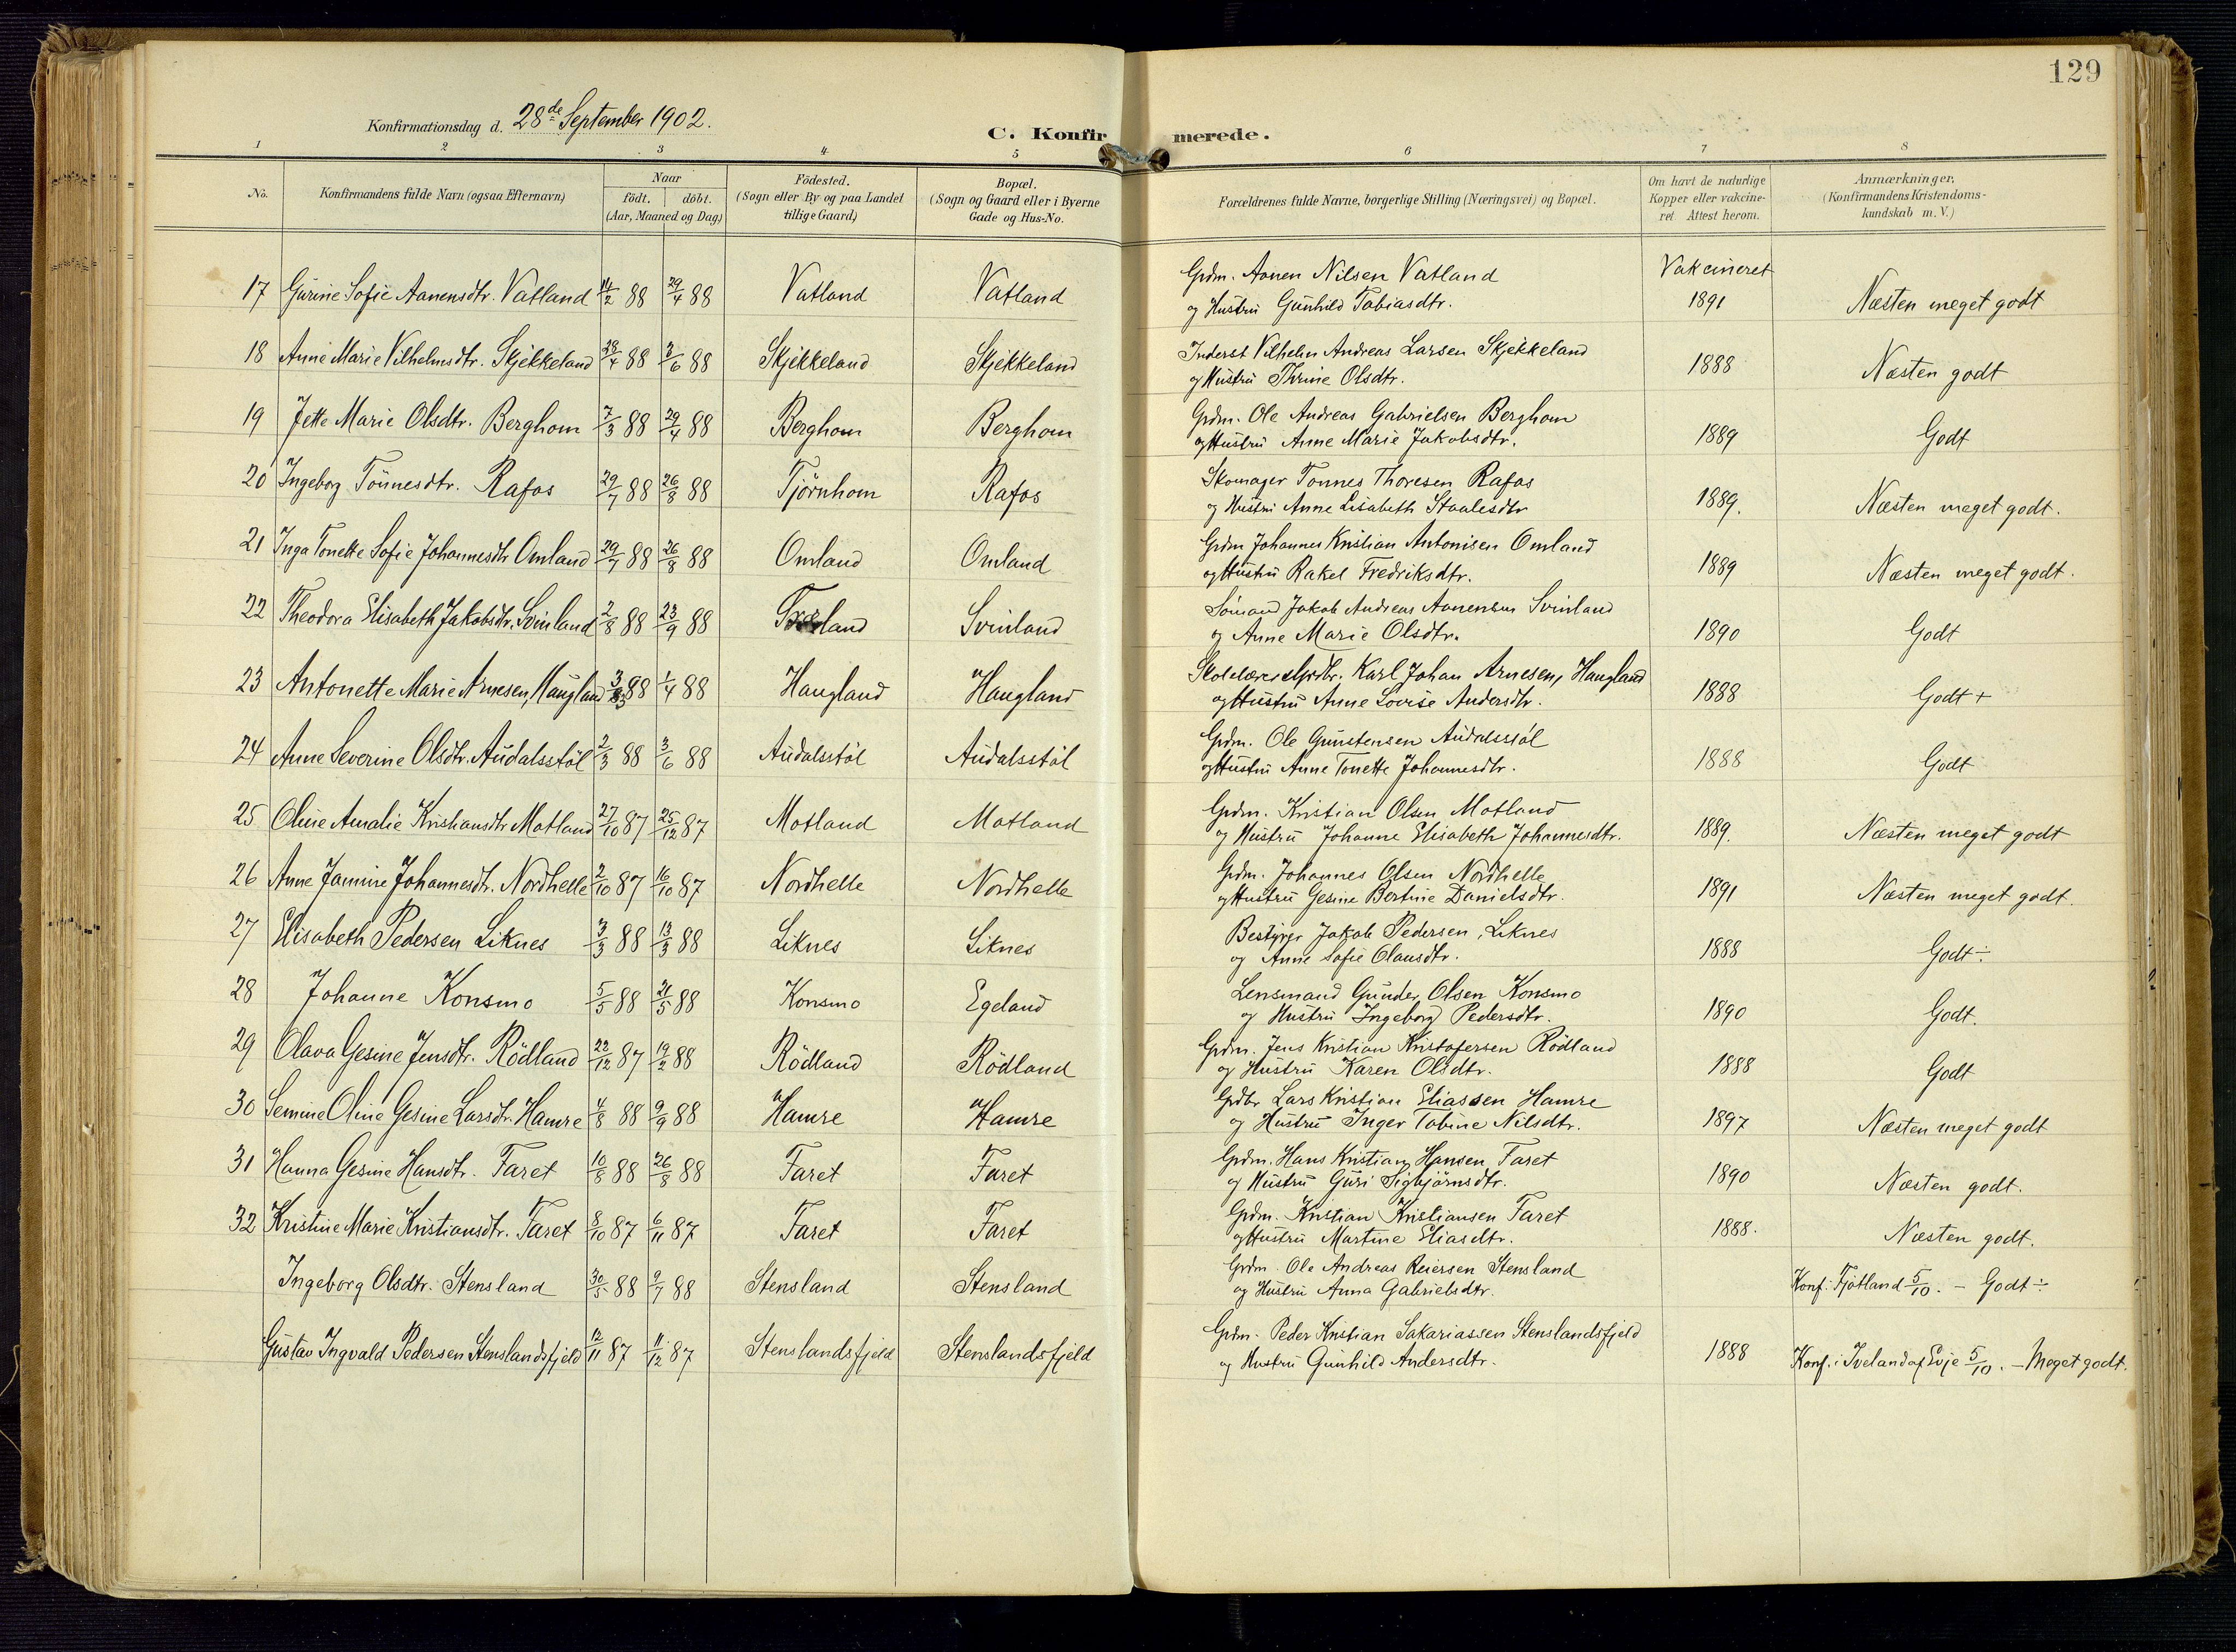 129
Konfirmationsdag d. 28de September 1902.
C. Konfirmerede.
1 2 3 4 5 6 7 8
No. Konfirmandens fulde Navn (ogsaa Efternavn) Naar födt. döbt. (Aar, Maaned og Dag) Födested. (Sogn eller By og paa Landet tillige Gaard) Bopæl. (Sogn og Gaard eller i Byerne Gade og Hus-No. Forældrenes fulde Navne, borgerlige Stilling (Næringsvei) og Bopæl. Om havt de naturlige Kopper eller vakcineret. Attest herom. Anmærkninger, (Konfirmandens Kristendomskundskab m. V.)
17 Gurine Sofie Aanensdtr. Vatland 14/2 88 29/4 88 Vatland Vatland Grdm. Aanen Nilsen Vatland Vakcineret
og Hustru Gunhild Tobiasdtr. 1891 Næsten meget godt
18 Anne Marie Vilhelmsdtr. Skjekkeland 28/4 88 3/6 88 Skjekkeland Skjekkeland Inderst Vilhelm Andreas Larsen Skjekkeland
og Hustru Thrine Olsdtr. 1888 Næsten godt
19 Jette Marie Olsdtr. Berghom 7/3 88 29/4 88 Berghom Berghom Grdm. Ole Andreas Gabrielsen Berghom
og Hustru Anne Marie Jakobsdtr. 1889 Godt
20 Ingeborg Tönnesdtr. Rafos 29/7 88 26/8 88 Tjörnhom Rafos Skomager Tonnes Thoresen Rafos
og Hustru Anne Lisabeth Staalesdtr 1889. Næsten meget godt.
21 Inga Tonette Sofie Johannesdtr Omland 29/7 88 26/8 88 Omland Omland Grdm Johannes Kristian Antonisen Omland
og Hustru Rakel Fredriksdtr. 1889 Næsten meget godt.
22 Theodora Elisabeth Jakobsdtr. Svinland 2/8 88 23/9 88 Svinland Sömand Jakob Andreas Aanensen Svinland
og Anne Marie Olsdtr. 1890 Godt
23 Antonette Marie Arnesen, Haugland 3/3 88 1/4 88 Haugland Haugland Karl Johan Arnesen, Haugland
og Hustru Anne Lovise Andersdtr. 1888 Godt +
24 Anne Severine Olsdtr. Audalsstöl 2/3 88 3/6 88 Audalsstöl Audalsstöl Grdm. Ole Gunstensen Audalsstöl
og Hustru Anne Tonette Johannesdtr. 1888 Godt
25 Oline Amalie Kristiansdtr Motland 27/10 87 25/12 87 Motland Motland Grdm. Kristian Olsen Motland
og Hustru Johanne Elisabeth Johannesdtr. 1889. Næsten meget godt
26 Anne Jamine Johannesdtr. Nordhelle 2/10 87 16/10 87 Nordhelle Nordhelle Grdm. Johannes Olsen Nordhelle
og Hustru Gesine Bertine Danielsdtr. 1891 Næsten meget godt.
27 Elisabeth Pedersen Liknes 3/3 88 13/3 88 Liknes Liknes Bestyrer Jakob Pedersen, Liknes
og Anne Sofie Olausdtr. 1888 Godt ÷
28 Johanne Konsmo 5/5 88 21/5 88 Konsmo Egeland Lensmand Gunder Olsen Konsmo
og Hustru Ingeborg Pedersdtr. 1890 Godt.
29 Olava Gesine Jensdtr. Rödland 22/12 87 19/2 88 Rödland Rödland Grdm. Jens Kristian Kristofersen Rödland
og Hustru Karen Olsdtr. 1888 Godt
30 Semine Oline Gesine Larsdtr. Hamre 4/8 88 9/9 88 Hamre Hamre Grdbr Lars Kristian Eliassen Hamre
og Hustru Inger Tobine Nilsdtr. 1897 Næsten meget godt
31 Hanna Gesine Hansdtr. Faret 10/8 88 26/8 88 Faret Faret Grdm. Hans Kristian Hansen Faret
og Hustru Guri Sigbjörnsdtr. 1890 Næsten godt.
32 Kristine Marie Kristiansdtr. Faret 8/10 87 6/11 87 Faret Faret Grdm. Kristian Kristiansen Faret
og Hustru Martine Eliasdtr. 1888. Næsten godt.
Ingeborg Olsdtr. Stensland 30/5 88 9/7 88 Stensland Stensland Grdm. Ole Andreas Reiersen Stensland
og Hustru Anna Gabrielsdtr. Konf. i Fjotland 5/10. – Godt ÷
Gustav Ingvald Pedersen Stenslandsfjeld 12/11 87 11/12 87 Stenslandsfjeld Stenslandsfjeld Grdm. Peder Kristian Sakariassen Stenslandsfjeld
og Hustru Gunhild Andersdtr. 1888 Konf. i Iveland af Evje 5/10. – Meget godt.